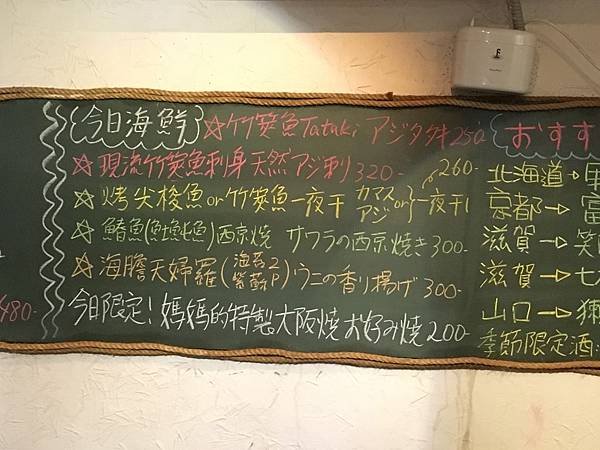 今日海鮮
☆竹筴魚Tataki アジタタキ250
☆現流竹筴魚刺身 天然アジ刺320-
260-
☆烤尖梭魚or竹筴魚一夜干 カマスorアジ}一夜干し
☆鰆魚(魠魠魚)西京燒 サワラの西京焼き300-
☆海膽天婦羅(海苔2紫蘇P)ウニの香り揚げ300-
今日限定!媽媽的特製大阪燒 お好み焼200-
480-
おすす
北海道→
京都→富
滋賀→笑
滋賀→七
山口→獺
季節限定酒